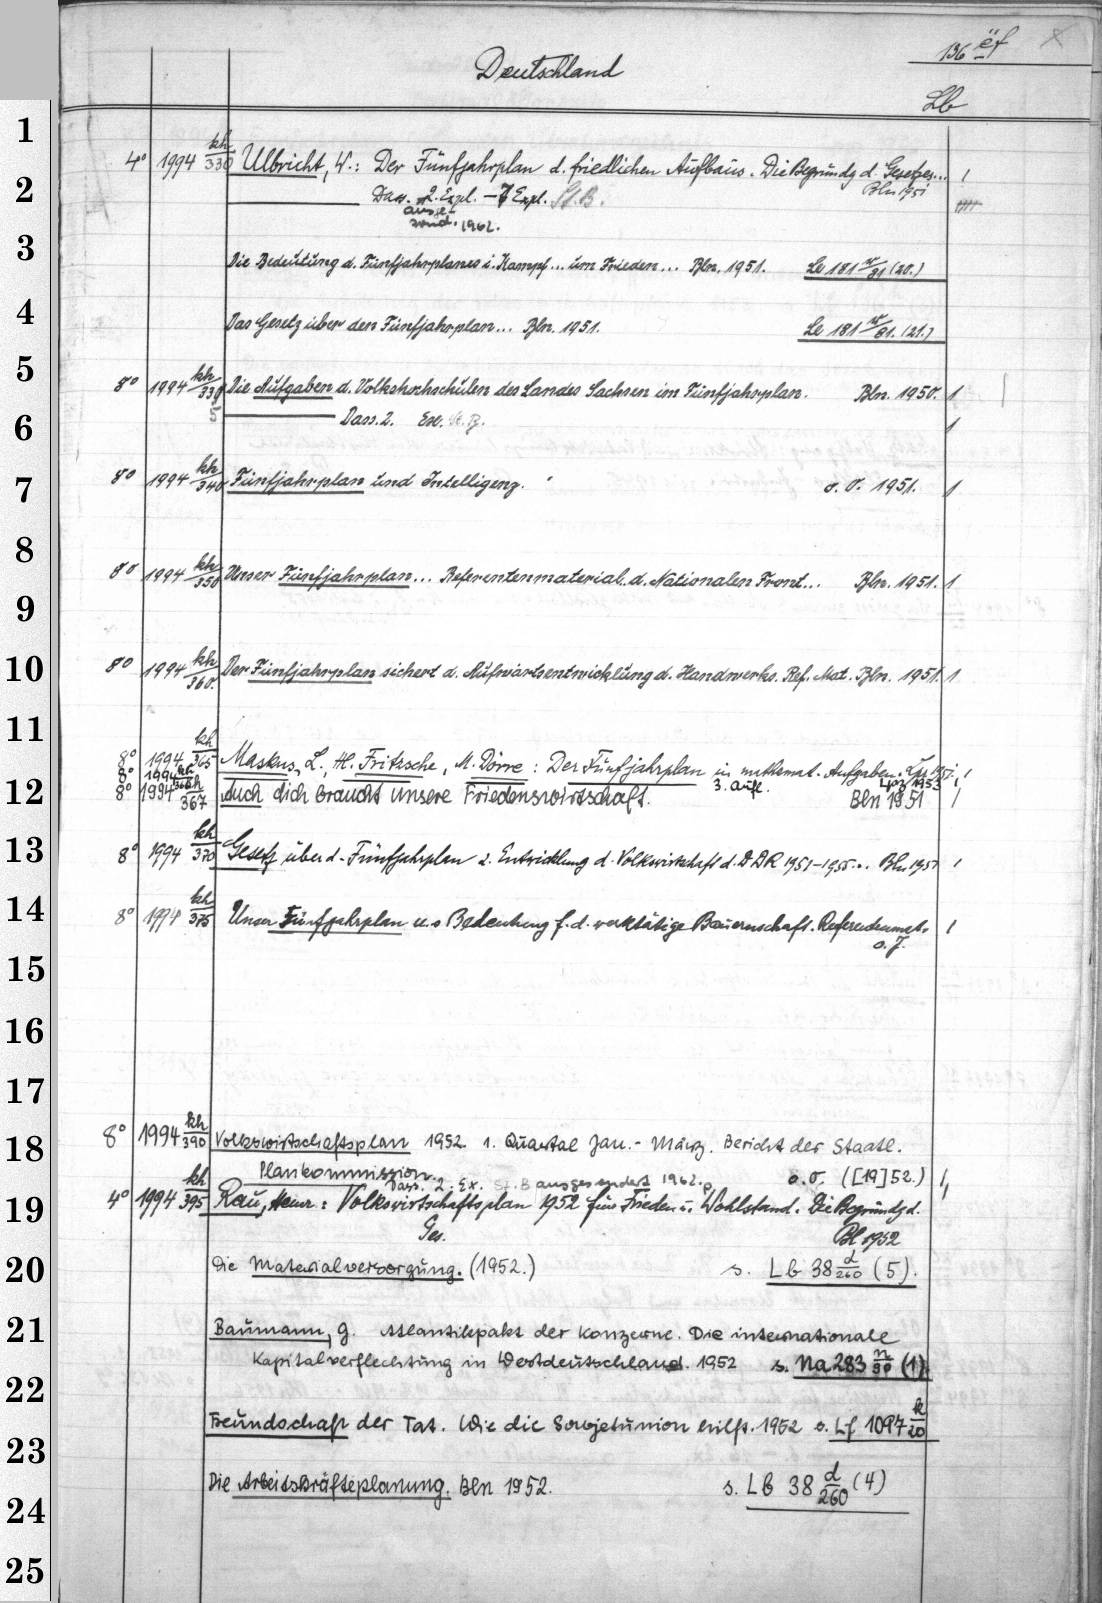 136 ëf
Deutschland
Lb
1
4° 1994 kh/330 Ulbricht, W.: Der Fünfjahrplan d. friedlichen Aufbaus. Die Begründg d. Gesetzes...
2
Bln 1951
Dass. 2. Expl. – 7 Expl. St.B.
ausge-
sond. 1962.
3
Die Bedeutung d. Fünfjahrplanes i. Kampf... um Frieden... Bln. 1951. Le 181 w/81 (20.)
4
Das Gesetz über den Fünfjahrplan... Bln. 1951. Le 181 w/81. (21.)
5
8° 1994 kh/335 Die Aufgaben d. Volkshochschulen des Landes Sachsen im Fünfjahrplan. Bln. 1950. 1
6
Dass. 2. Ex. St.B. 1
7
8° 1994 kh/340 Fünfjahrplan und Intelligenz. o. O. 1951. 1
8
8° 1994 kh/350 Unser Fünfjahrplan... Referentenmaterial. d. Nationalen Front... Bln. 1951. 1
9
10
8° 1994 kh/360. Der Fünfjahrplan sichert d. Aufwärtsentwicklung d. Handwerks. Ref. Mat. Bln. 1951. 1
11
8° 1994 kh/365 Maskus, L., H. Fritzsche, M. Dörre: Der Fünfjahrplan in mathemat. Aufgaben. Lpz 1951.
8° 1994 kh/366 3. Aufl. Lpzg 1953
12
8° 1994 kh/367 Auch dich braucht unsere Friedenswirtschaft. Bln 1951
13
8° 1994 kh/370 Gesetz über d. Fünfjahrplan z. Entwicklung d. Volkswirtschaft d. DDR 1951–1955.. Bln 1951
14
8° 1994 kh/375 Unser Fünfjahrplan u. s Bedeutung f. d. werktätige Bauernschaft. Referentenmat.
o. J.
15
16
17
18
8° 1994 kh/390 Volkswirtschaftsplan 1952 1. Quartal Jan.- März. Bericht der Staatl.
Plankommission. o. O. ([19]52.)
Dass. 2. Ex. St.B ausgesondert 1962.
19
4° 1994 kh/395 Rau, Heinr.: Volkswirtschaftsplan 1952 für Frieden u. Wohlstand. Die Begründg d.
Ges. Bl 1952
20
Die Materialversorgung. (1952.) s. Lb 38 d/260 (5).
21
Baumann, G. Atlantikpakt der Konzerne. Die internationale
Kapitalverflechtung in Westdeutschland. 1952 s. Na 283 n/30 (1).
22
Freundschaft der Tat. Wie die Sowjetunion hilft. 1952 s. Lf 1097 k/20
23
Die Arbeitskräfteplanung. Bln 1952. s. Lb 38 d/260 (4)
24
25